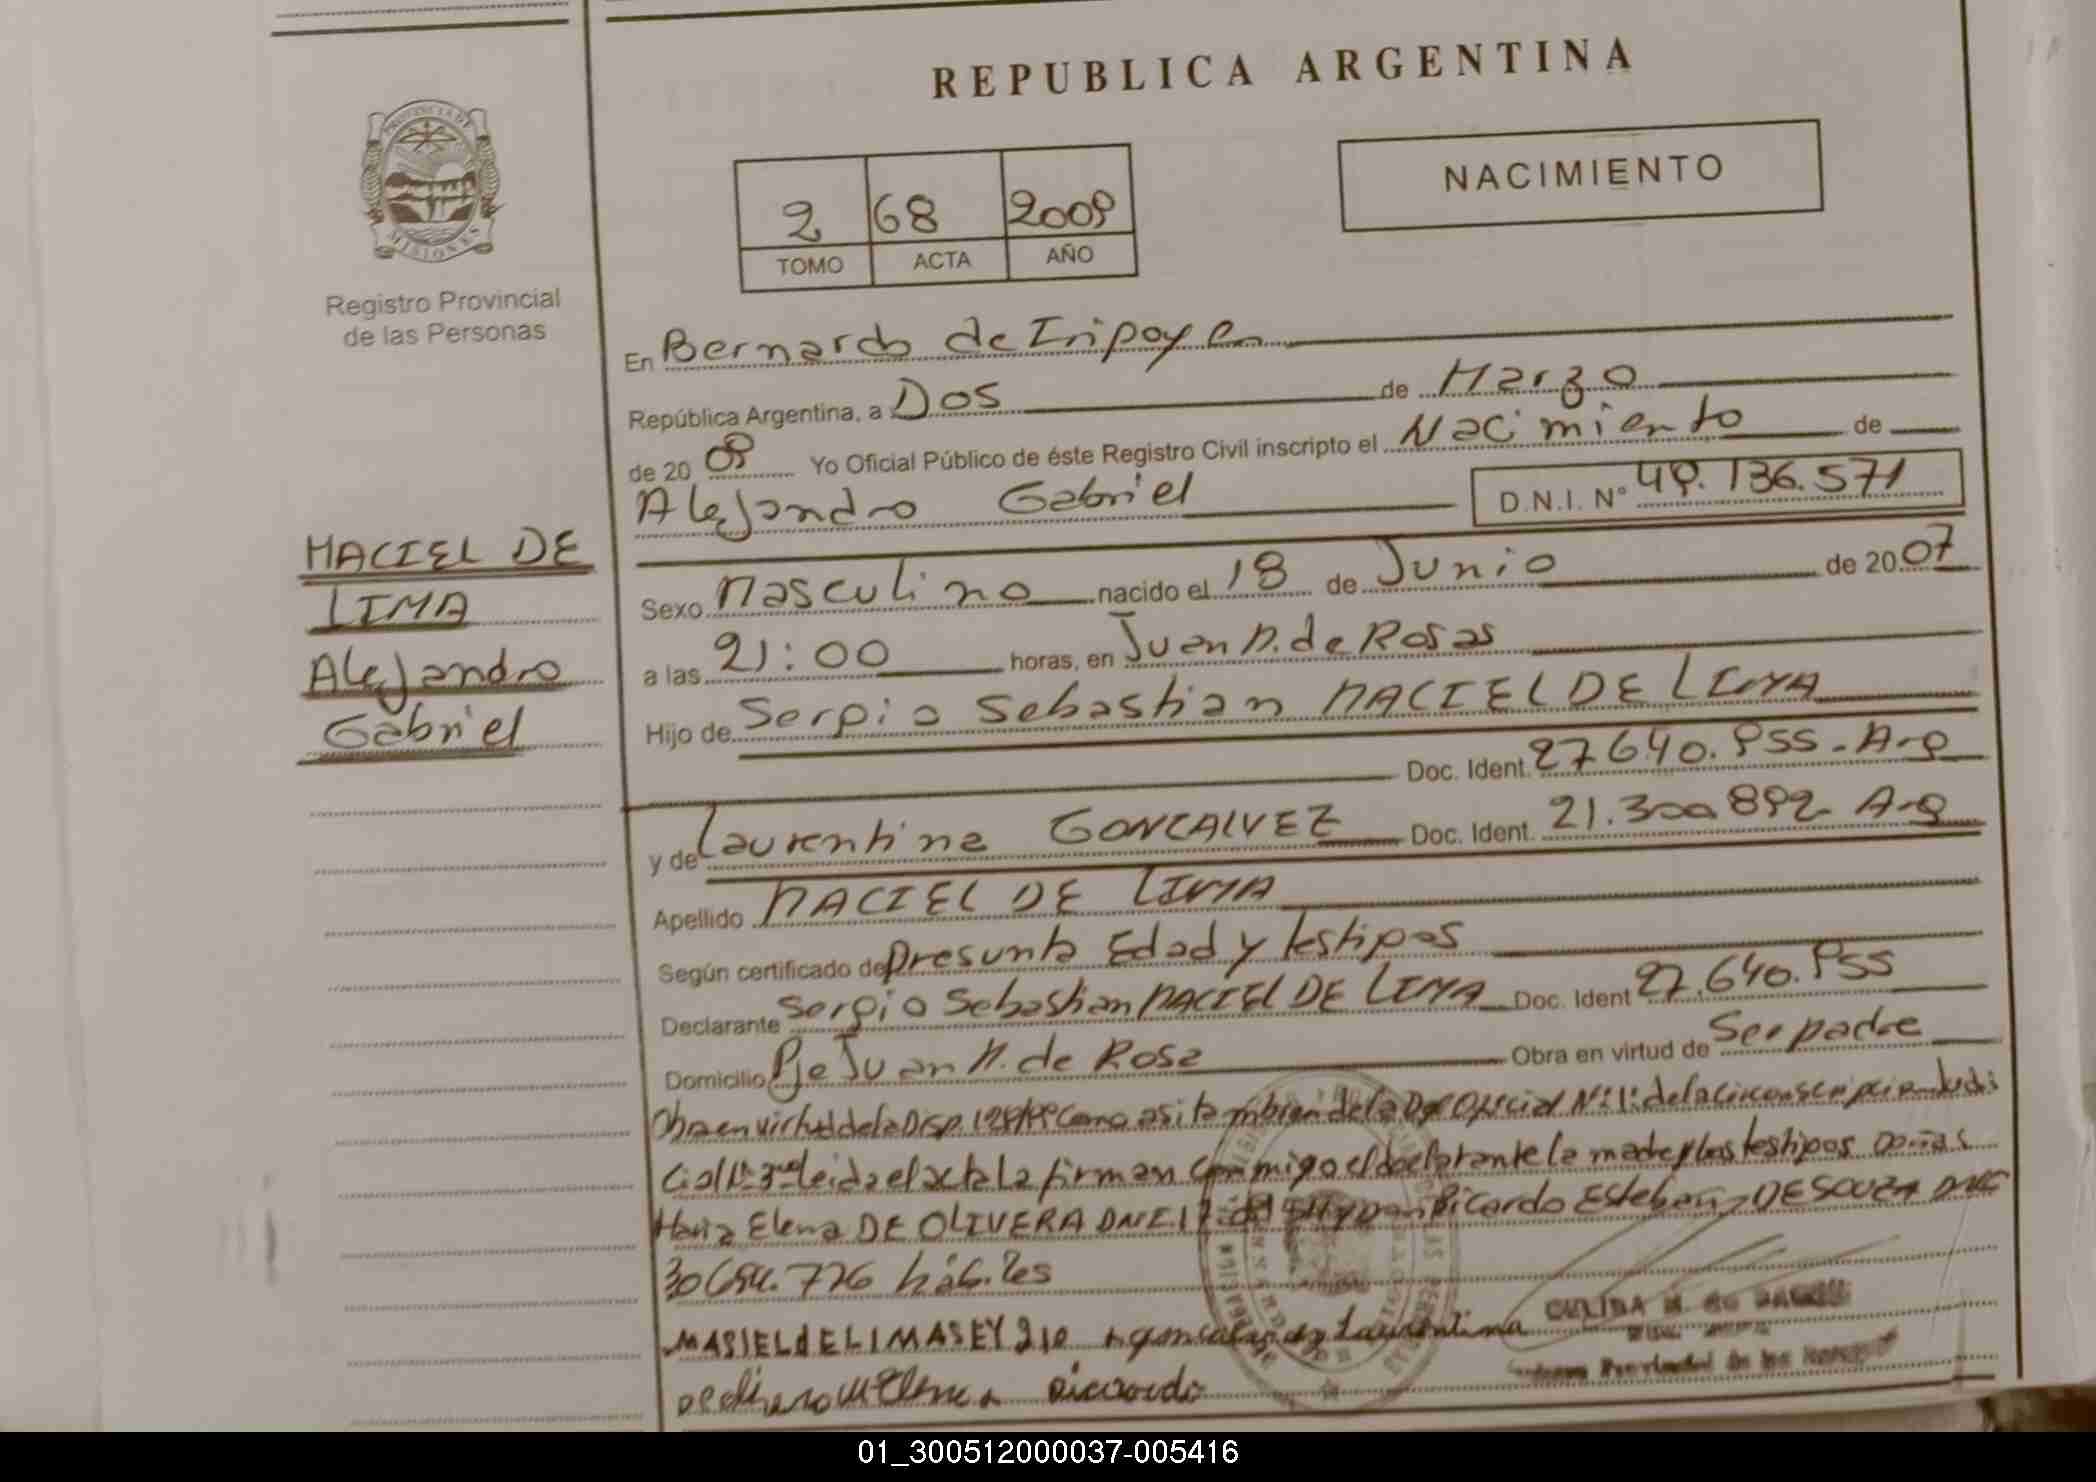 REPUBLICA ARGENTINA
PROVINCIA DE
MISIONES
Registro Provincial
de las Personas
NACIMIENTO
2 68 2009
TOMO ACTA AÑO
En Bernardo de Irigoyen
República Argentina, a Dos de Marzo
de 20 09 Yo Oficial Público de éste Registro Civil inscripto el Nacimiento de
Alejandro Gabriel D.N.I. N° 49.136.571
MACIEL DE
LIMA
Alejandro
Gabriel
Sexo Masculino nacido el 18 de Junio de 20 07
a las 21:00 horas, en Juan M. de Rosas
Hijo de Sergio Sebastian MACIEL DE LIMA
Doc. Ident. 27.640.955-Arg
y de Laurentina GONCALVEZ Doc. Ident. 21.300.892 Arg
Apellido MACIEL DE LIMA
Según certificado de presunta Edad y testigos
Declarante Sergio Sebastian MACIEL DE LIMA Doc. Ident 27.640.955
Domicilio Pje Juan M. de Rosa Obra en virtud de Ser padre
Obra en virtud de la Disp. como asi tambien de la Oficial N° 1 de la Circunscripcion Judi
cial N° 3 leida el acta la firman conmigo el declarante la madre y los testigos Doñas
Maria Elena DE OLIVERA DNI 17 Ricardo Esteban DE SOUZA DNI
30.694.776 hábiles
MASIEL dE LIMA SEY 210 Laurentina
Ricardo
01_300512000037-005416